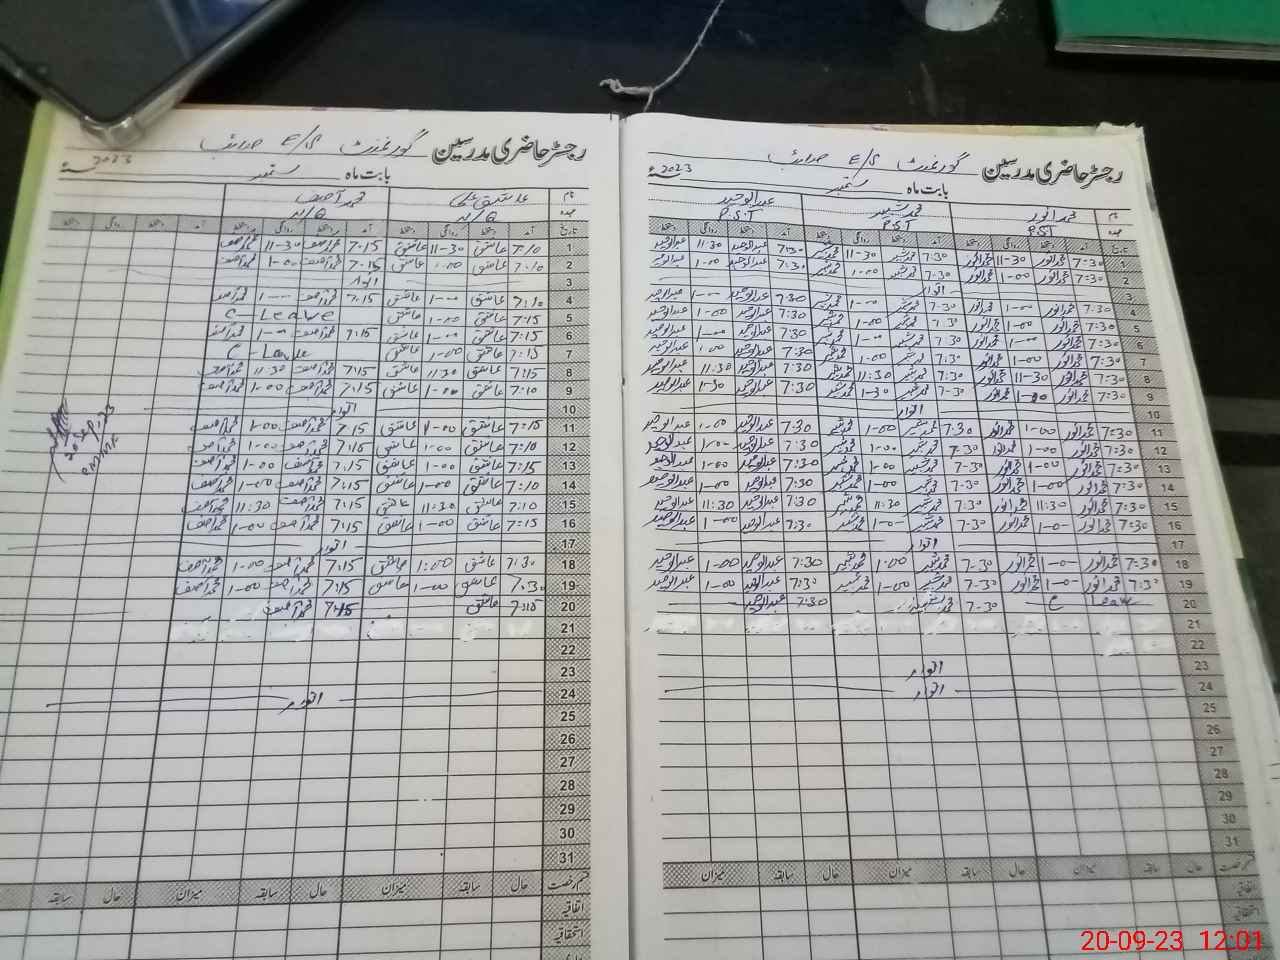 رجسٹر حاضری مدرسین گورنمنٹ E/S
بابت ماہ ستمبر 2023ء
نام محمد انور محمد شبیر عبدالوحید
عہدہ P.S.T P.S.T P.S.T
تاریخ آمد دستخط روانگی دستخط آمد دستخط روانگی دستخط آمد دستخط روانگی دستخط
1 7:30 محمد انور 11-30 محمد انور 7:30 محمد شبیر 11-30 محمد شبیر 7:30 عبدالوحید 11:30 عبدالوحید
2 7:30 محمد انور 1-00 محمد انور 7-30 محمد شبیر 1-00 محمد شبیر 7:30 عبدالوحید 1-00 عبدالوحید
3 اتوار
4 7:30 محمد انور 1-00 محمد انور 7-30 محمد شبیر 1-00 محمد شبیر 7:30 عبدالوحید 1-00 عبدالوحید
5 7:30 محمد انور 1-00 محمد انور 7:30 محمد شبیر 1-00 محمد شبیر 7:30 عبدالوحید 1-00 عبدالوحید
6 7:30 محمد انور 1-00 محمد انور 7:30 محمد شبیر 1-00 محمد شبیر 7:30 عبدالوحید 1-00 عبدالوحید
7 7:30 محمد انور 1-00 محمد انور 7:30 محمد شبیر 1-00 محمد شبیر 7:30 عبدالوحید 1-00 عبدالوحید
8 7:30 محمد انور 11-30 محمد انور 7:30 محمد شبیر 11:30 محمد شبیر 7:30 عبدالوحید 11:30 عبدالوحید
9 7:30 محمد انور محمد انور 7:30 محمد شبیر 1-30 محمد شبیر 7:30 عبدالوحید 1-30 عبدالوحید
10 اتوار
11 7:30 محمد انور 1-00 محمد انور 7:30 محمد شبیر 1-00 محمد شبیر 7:30 عبدالوحید 1-00 عبدالوحید
12 7:30 محمد انور 1-00 محمد انور 7:30 محمد شبیر 1-00 محمد شبیر 7:30 عبدالوحید 1-00 عبدالوحید
13 7:30 محمد انور 1-00 محمد انور 7-30 محمد شبیر 1-00 محمد شبیر 7:30 عبدالوحید 1-00 عبدالوحید
14 7:30 محمد انور 1-00 محمد انور 7-30 محمد شبیر 1-00 محمد شبیر 7:30 عبدالوحید 1-00 عبدالوحید
15 7:30 محمد انور 11:30 محمد انور 7-30 محمد شبیر 11:30 محمد شبیر 7:30 عبدالوحید 11:30 عبدالوحید
16 7:30 محمد انور 1-0- محمد انور 7-30 محمد شبیر 1-0- محمد شبیر 7:30 عبدالوحید 1-00 عبدالوحید
17 اتوار
18 7:30 محمد انور 1-0- محمد انور 7-30 محمد شبیر 1-00 محمد شبیر 7:30 عبدالوحید 1-00 عبدالوحید
19 7:30 محمد انور 1-0- محمد انور 7-30 محمد شبیر 1-00 محمد شبیر 7:30 عبدالوحید 1-00 عبدالوحید
20 C Leave 7-30 محمد شبیر 7:30 عبدالوحید
21
22
23 اتوار
24 اتوار
25
26
27
28
29
30
31
حال سابقہ میزان حال سابقہ میزان حال سابقہ میزان
اتفاقیہ
استحقاقیہ
رجسٹر حاضری مدرسین گورنمنٹ E/S
بابت ماہ ستمبر 2023ء
نام عاشق علی محمد آصف
عہدہ
تاریخ آمد دستخط روانگی دستخط آمد دستخط روانگی دستخط آمد دستخط روانگی دستخط
1 7:10 عاشق 11-30 عاشق 7:15 محمد آصف 11-30 محمد آصف
2 7:10 عاشق 1:00 عاشق 7:15 محمد آصف 1-00 محمد آصف
3 اتوار
4 7:10 عاشق 1-00 عاشق 7:15 محمد آصف 1-00 محمد آصف
5 7:15 عاشق 1-00 عاشق C-Leave
6 7:15 عاشق 1-00 عاشق 7:15 محمد آصف 1-00 محمد آصف
7 7:15 عاشق 1-00 عاشق C-Leave
8 7:15 عاشق 11:30 عاشق 7:15 محمد آصف 11:30 محمد آصف
9 7:10 عاشق 1-00 عاشق 7:15 محمد آصف 1-00 محمد آصف
10 اتوار
11 7:15 عاشق 1-00 عاشق 7:15 محمد آصف 1-00 محمد آصف
12 7:10 عاشق 1-00 عاشق 7:15 محمد آصف 1-00 محمد آصف
13 7:15 عاشق 1-00 عاشق 7:15 محمد آصف 1-00 محمد آصف
14 7:10 عاشق 1-00 عاشق 7:15 محمد آصف 1-00 محمد آصف
15 7:10 عاشق 11:30 عاشق 7:15 محمد آصف 11:30 محمد آصف
16 7:15 عاشق 1-00 عاشق 7:15 محمد آصف 1-00 محمد آصف
17 اتوار
18 7:30 عاشق 1:00 عاشق 7:15 محمد آصف 1-00 محمد آصف
19 7:30 عاشق 1-00 عاشق 7:15 محمد آصف 1-00 محمد آصف
20 7:15 عاشق 7:15 محمد آصف
21
22
23
24 اتوار
25
26
27
28
29
30
31
قسم رخصت حال سابقہ میزان حال سابقہ میزان حال سابقہ
اتفاقیہ
استحقاقیہ
20 Sep, 23
20-09-23 12:01